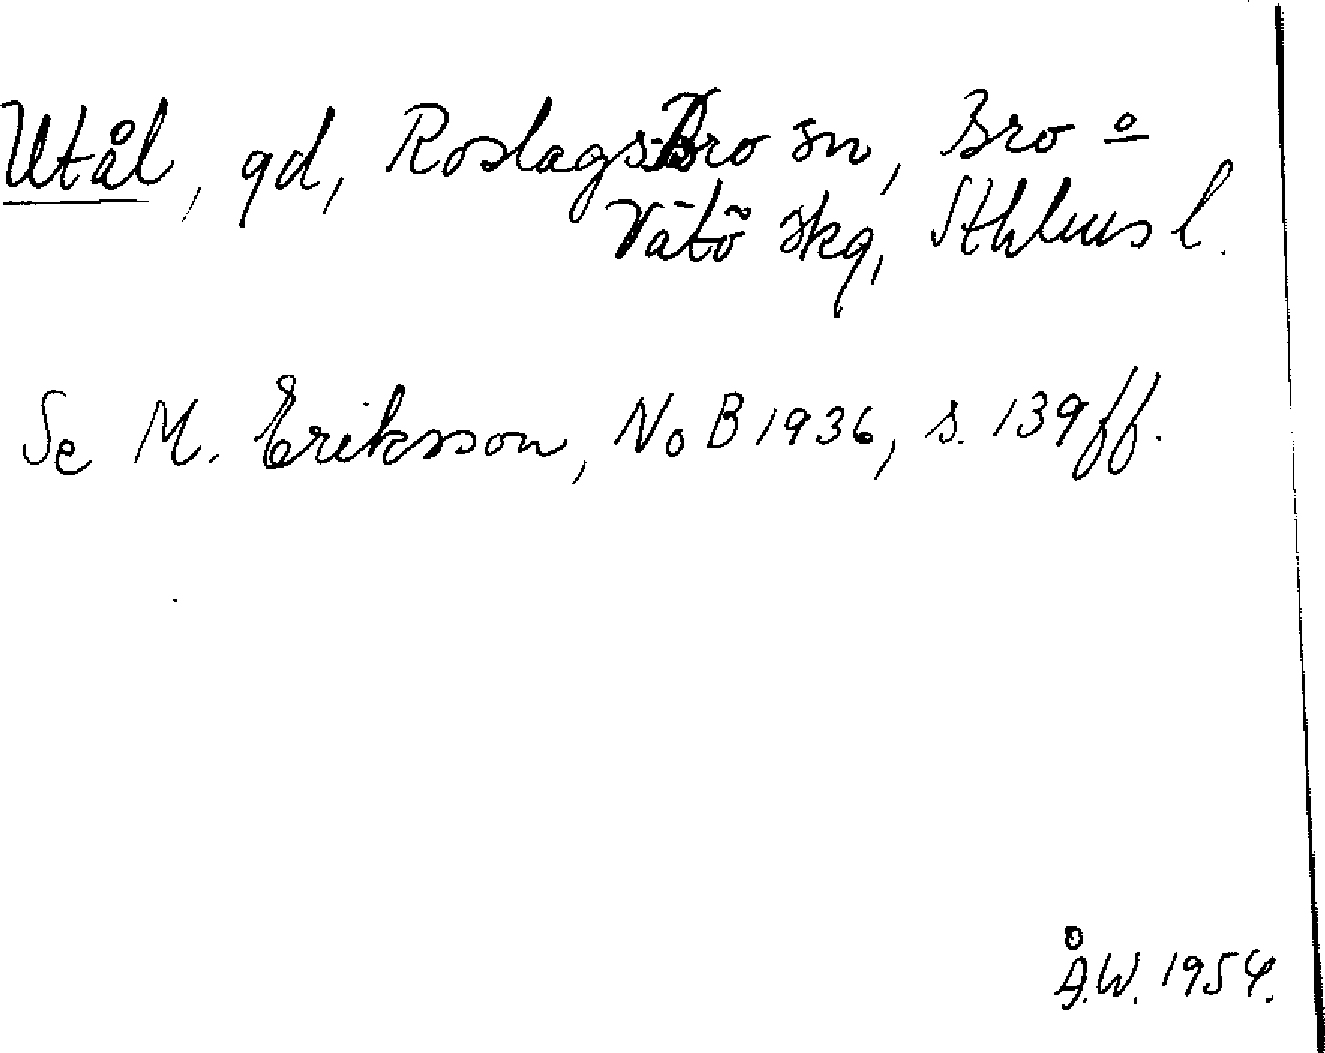 Utål, gd, Roslags-Bro sn, Bro o
Vätö skg, Sthlms l.
Se M. Eriksson, NoB 1936, s. 139 ff.
Å.W. 1954.